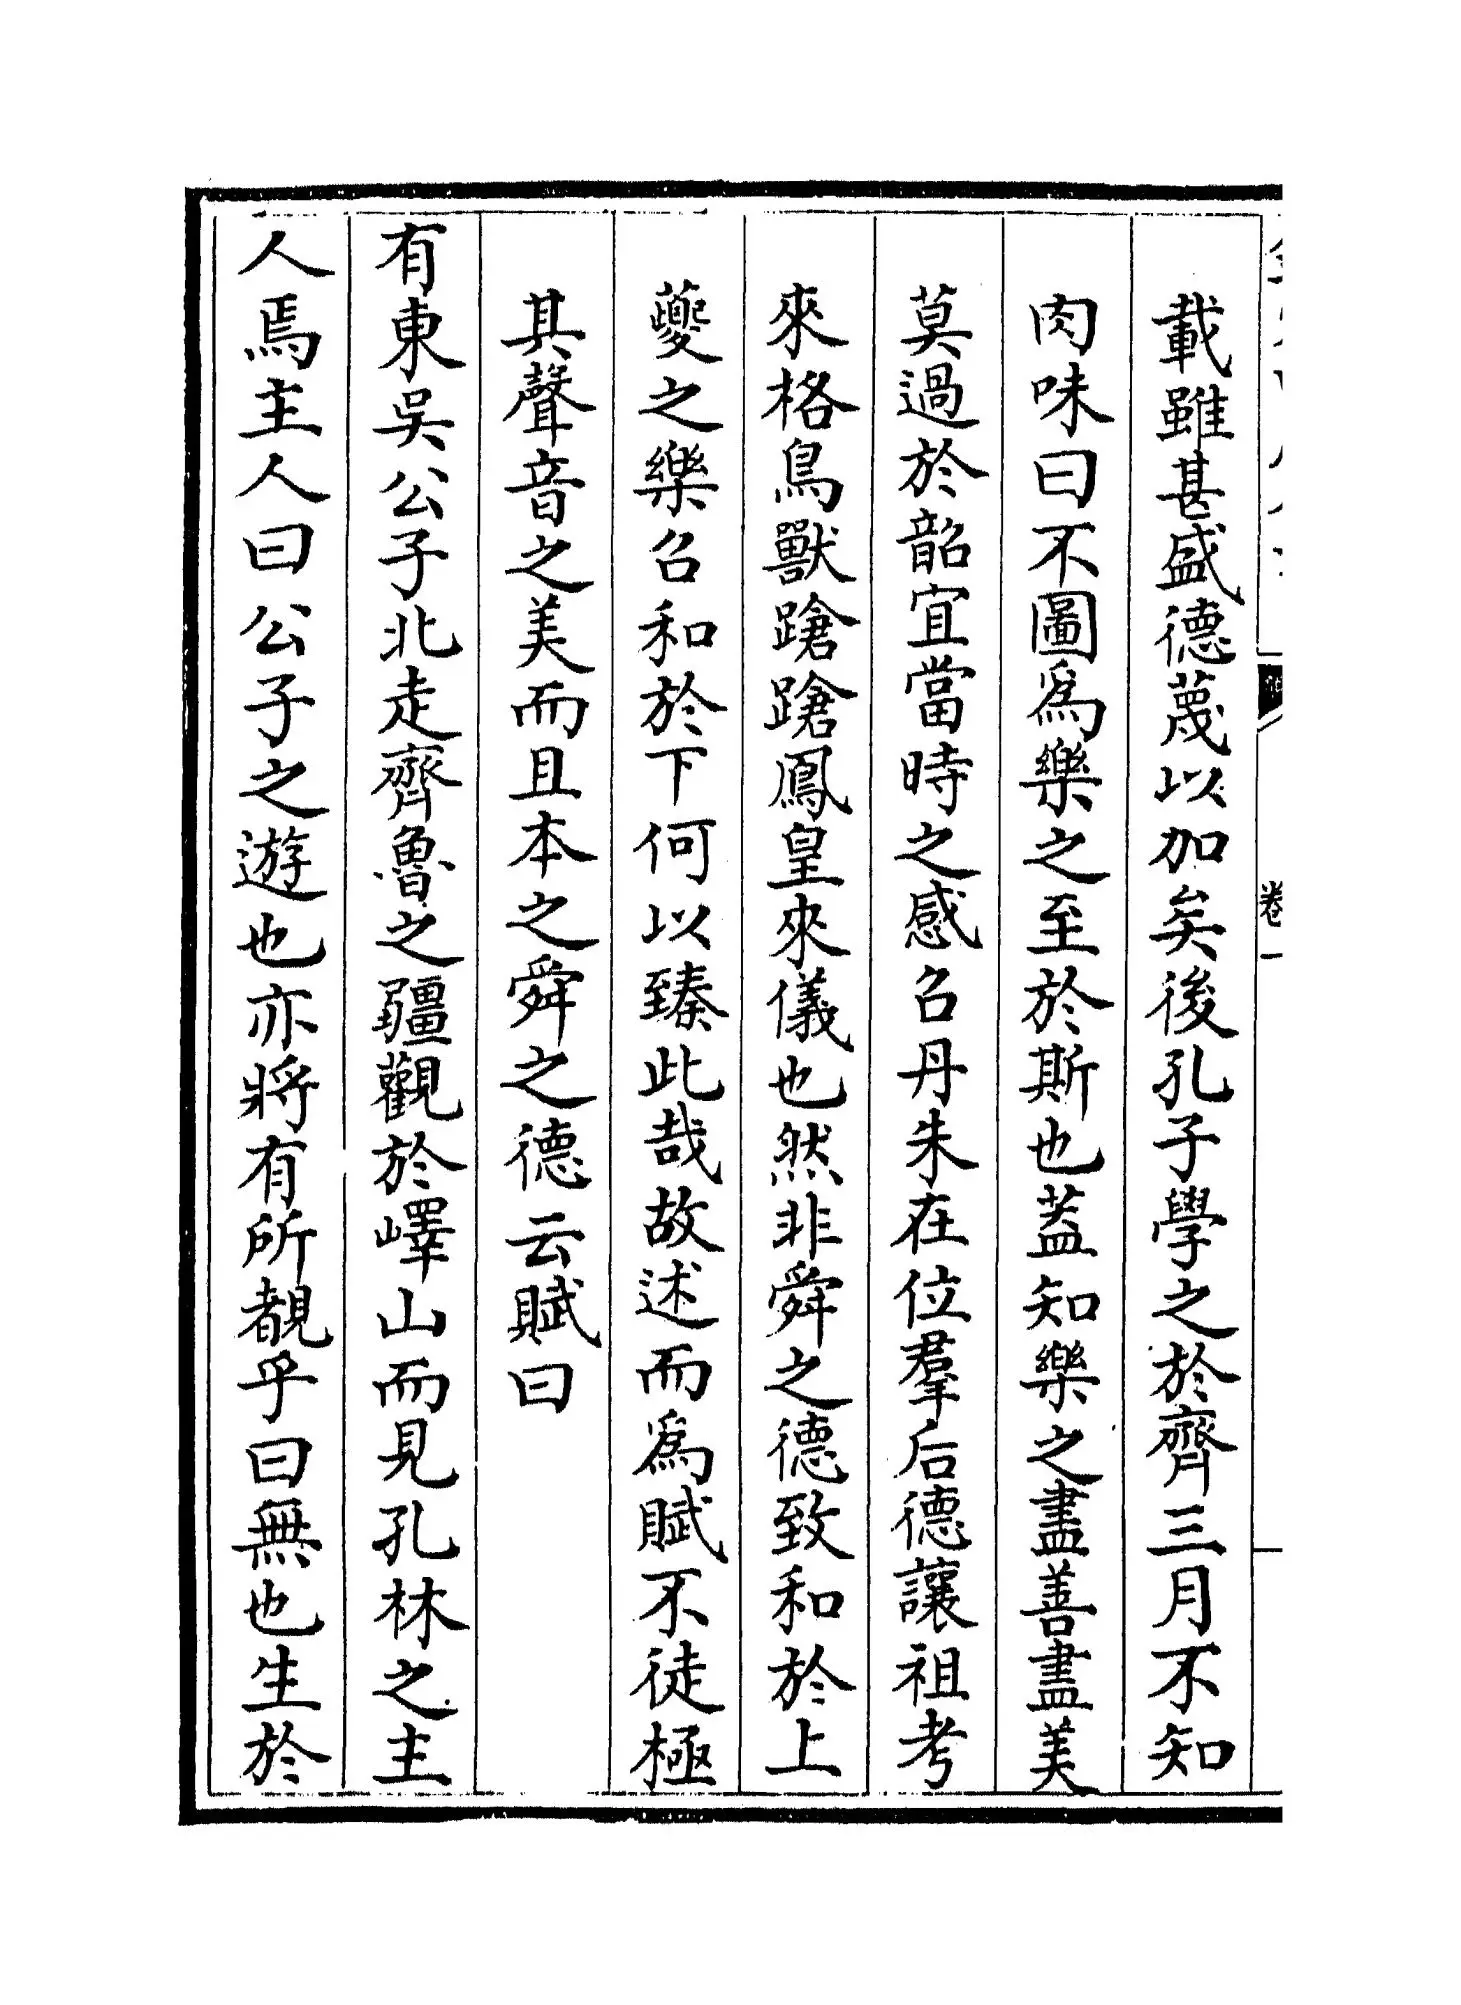 載雖甚盛德蔑以加矣後孔子學之於齊三月不知
肉味曰不圖爲樂之至於斯也葢知樂之盡善盡美
莫過於韶宜當時之感召丹朱在位羣后德讓祖考
來格鳥獸蹌蹌鳳皇來儀也然非舜之德致和於上
夔之樂召和於下何以臻此哉故述而爲賦不徒極
其聲音之美而且本之舜之德云賦曰
有東吳公子北走齊魯之疆觀於嶧山而見孔林之主
人焉主人曰公子之遊也亦將有所覩乎曰無也生於
卷一